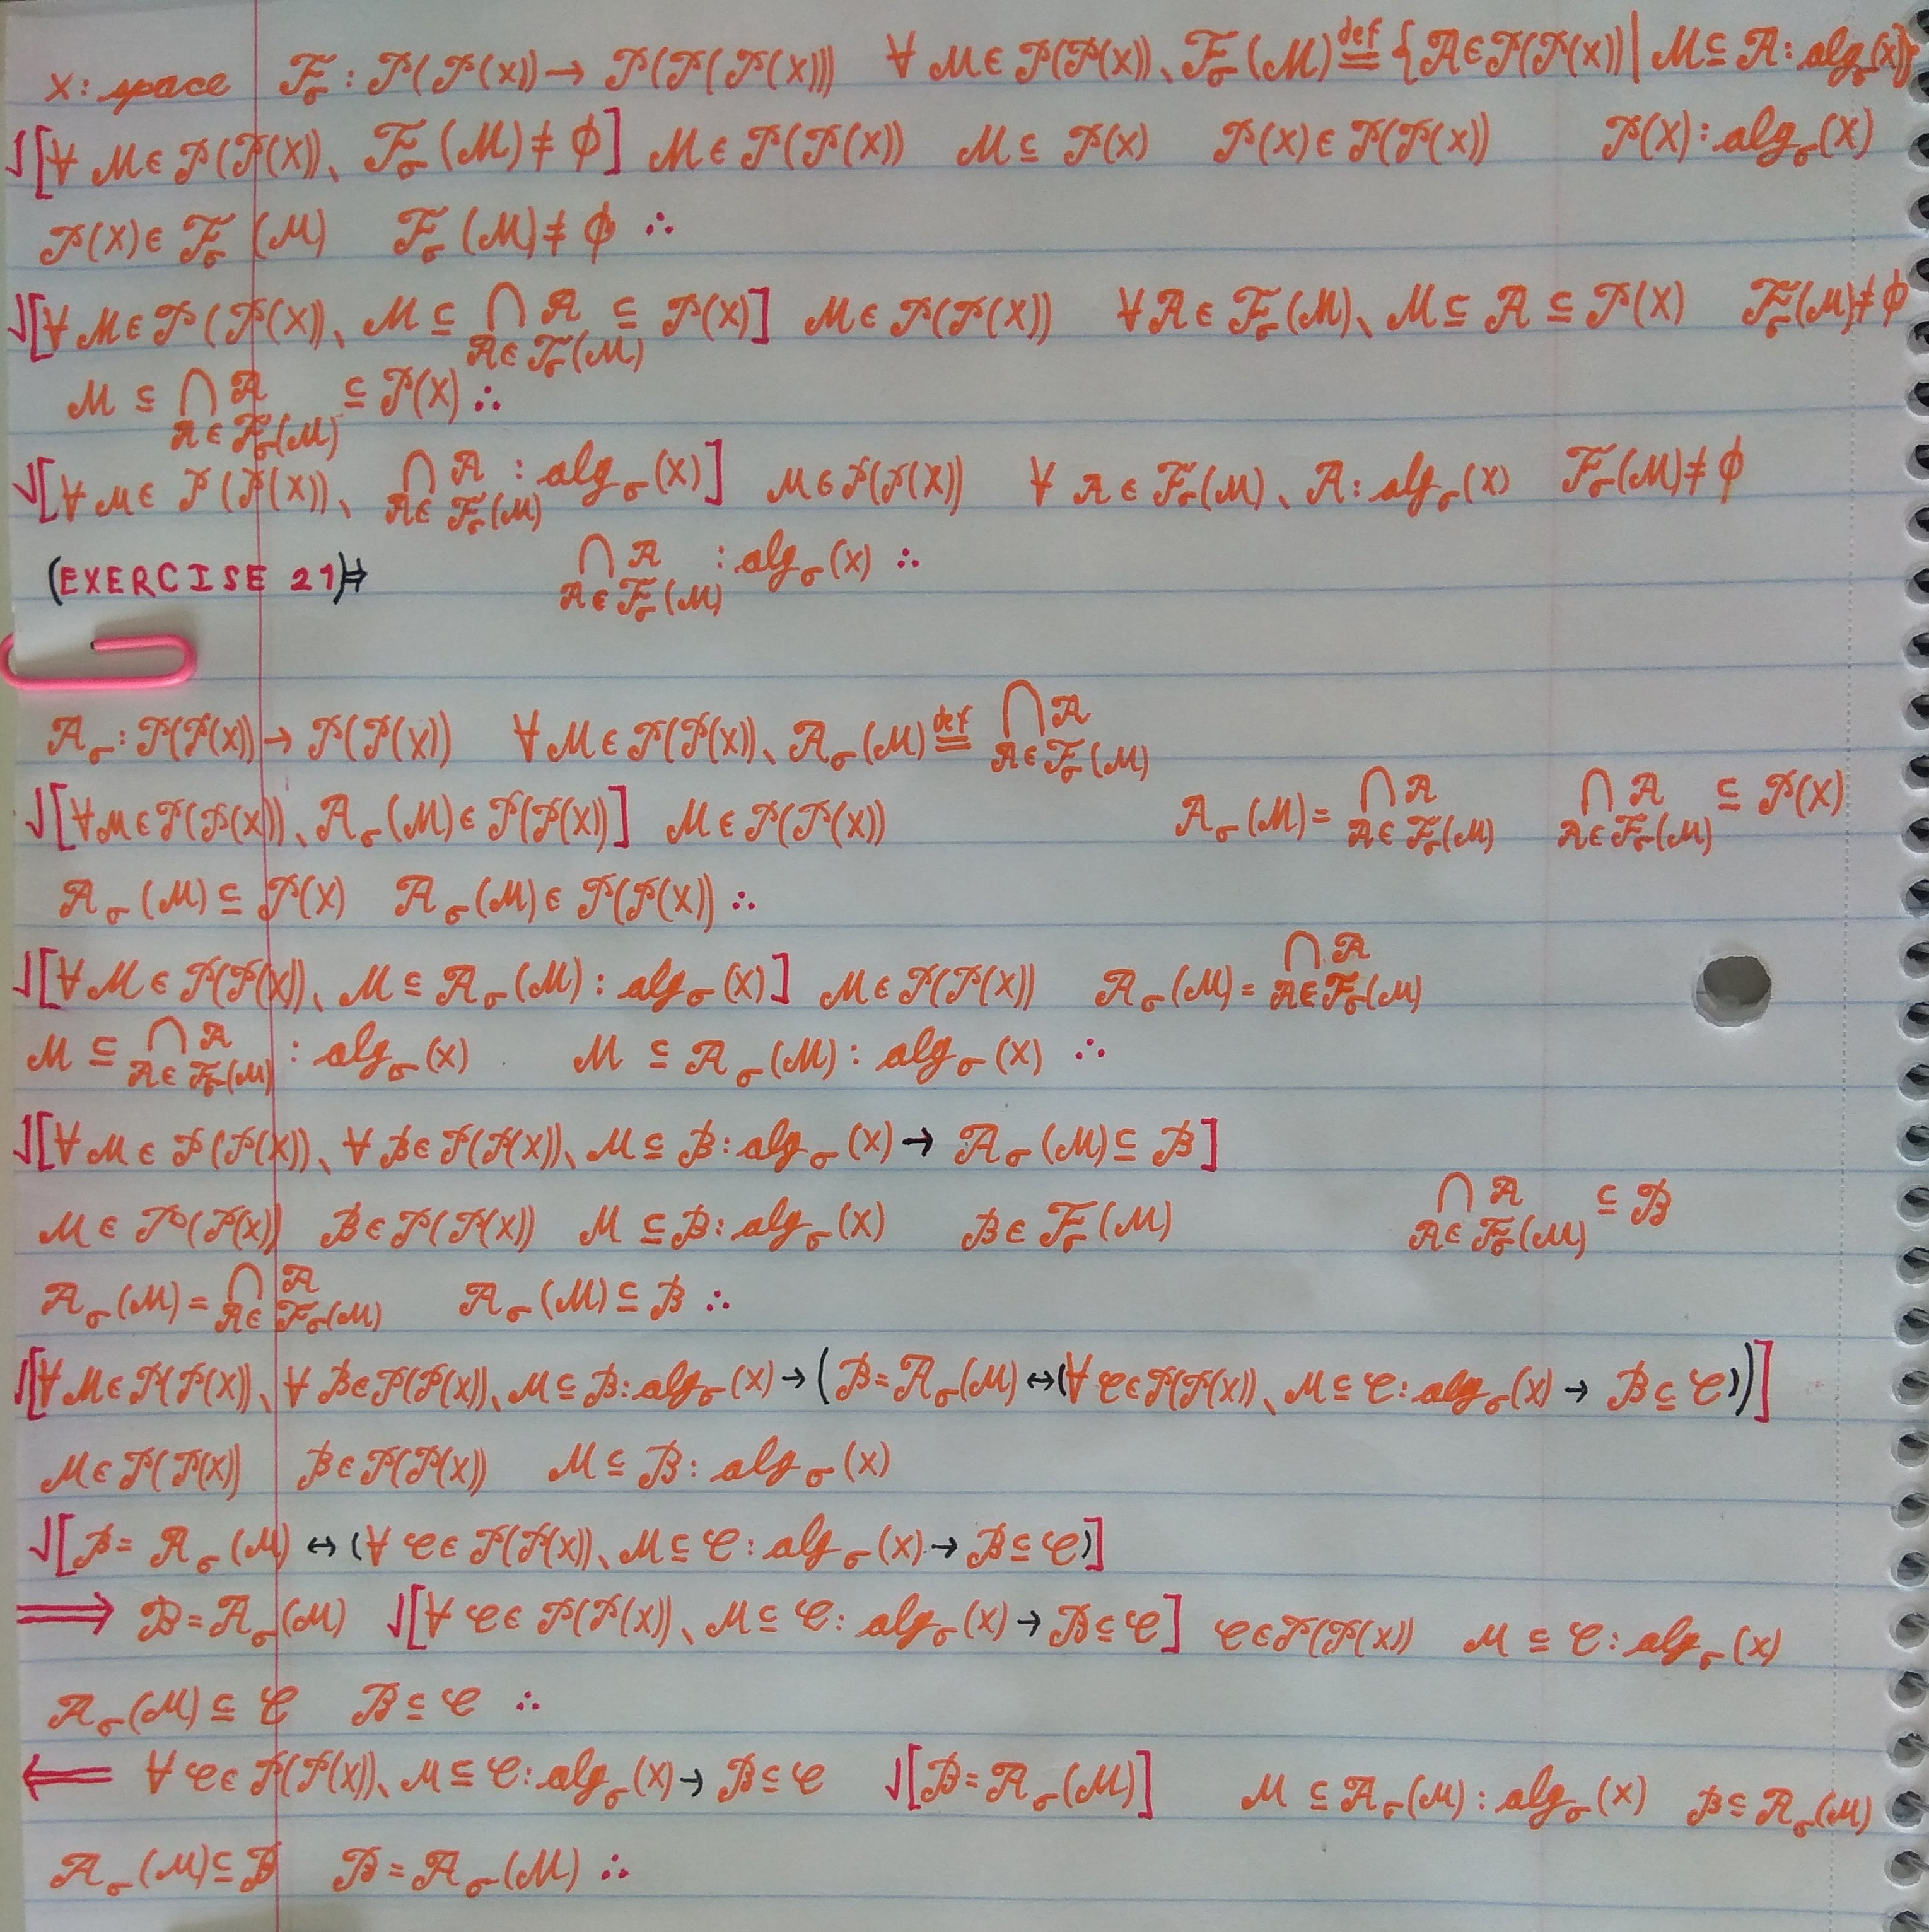 X: space 𝓕_σ : 𝒫(𝒫(X)) → 𝒫(𝒫(𝒫(X))) ∀ 𝓜 ∈ 𝒫(𝒫(X))、𝓕_σ(𝓜) ≝ {𝓐 ∈ 𝒫(𝒫(X)) | 𝓜 ⊆ 𝓐 : alg_σ(X)}
√[∀ 𝓜 ∈ 𝒫(𝒫(X))、𝓕_σ(𝓜) ≠ ϕ] 𝓜 ∈ 𝒫(𝒫(X)) 𝓜 ⊆ 𝒫(X) 𝒫(X) ∈ 𝒫(𝒫(X)) 𝒫(X) : alg_σ(X)
𝒫(X) ∈ 𝓕_σ(𝓜) 𝓕_σ(𝓜) ≠ ϕ ∴
√[∀ 𝓜 ∈ 𝒫(𝒫(X))、𝓜 ⊆ ⋂_{𝓐 ∈ 𝓕_σ(𝓜)} 𝓐 ⊆ 𝒫(X)] 𝓜 ∈ 𝒫(𝒫(X)) ∀ 𝓐 ∈ 𝓕_σ(𝓜)、𝓜 ⊆ 𝓐 ⊆ 𝒫(X) 𝓕_σ(𝓜) ≠ ϕ
𝓜 ⊆ ⋂_{𝓐 ∈ 𝓕_σ(𝓜)} 𝓐 ⊆ 𝒫(X) ∴
√[∀ 𝓜 ∈ 𝒫(𝒫(X))、⋂_{𝓐 ∈ 𝓕_σ(𝓜)} 𝓐 : alg_σ(X)] 𝓜 ∈ 𝒫(𝒫(X)) ∀ 𝓐 ∈ 𝓕_σ(𝓜)、𝓐 : alg_σ(X) 𝓕_σ(𝓜) ≠ ϕ
(EXERCISE 21)⇒ ⋂_{𝓐 ∈ 𝓕_σ(𝓜)} 𝓐 : alg_σ(X) ∴
𝓐_σ : 𝒫(𝒫(X)) → 𝒫(𝒫(X)) ∀ 𝓜 ∈ 𝒫(𝒫(X))、𝓐_σ(𝓜) ≝ ⋂_{𝓐 ∈ 𝓕_σ(𝓜)} 𝓐
√[∀ 𝓜 ∈ 𝒫(𝒫(X))、𝓐_σ(𝓜) ∈ 𝒫(𝒫(X))] 𝓜 ∈ 𝒫(𝒫(X)) 𝓐_σ(𝓜) = ⋂_{𝓐 ∈ 𝓕_σ(𝓜)} 𝓐 ⋂_{𝓐 ∈ 𝓕_σ(𝓜)} 𝓐 ⊆ 𝒫(X)
𝓐_σ(𝓜) ⊆ 𝒫(X) 𝓐_σ(𝓜) ∈ 𝒫(𝒫(X)) ∴
√[∀ 𝓜 ∈ 𝒫(𝒫(X))、𝓜 ⊆ 𝓐_σ(𝓜) : alg_σ(X)] 𝓜 ∈ 𝒫(𝒫(X)) 𝓐_σ(𝓜) = ⋂_{𝓐 ∈ 𝓕_σ(𝓜)} 𝓐
𝓜 ⊆ ⋂_{𝓐 ∈ 𝓕_σ(𝓜)} 𝓐 : alg_σ(X) 𝓜 ⊆ 𝓐_σ(𝓜) : alg_σ(X) ∴
√[∀ 𝓜 ∈ 𝒫(𝒫(X))、∀ 𝓑 ∈ 𝒫(𝒫(X))、𝓜 ⊆ 𝓑 : alg_σ(X) → 𝓐_σ(𝓜) ⊆ 𝓑]
𝓜 ∈ 𝒫(𝒫(X)) 𝓑 ∈ 𝒫(𝒫(X)) 𝓜 ⊆ 𝓑 : alg_σ(X) 𝓑 ∈ 𝓕_σ(𝓜) ⋂_{𝓐 ∈ 𝓕_σ(𝓜)} 𝓐 ⊆ 𝓑
𝓐_σ(𝓜) = ⋂_{𝓐 ∈ 𝓕_σ(𝓜)} 𝓐 𝓐_σ(𝓜) ⊆ 𝓑 ∴
√[∀ 𝓜 ∈ 𝒫(𝒫(X))、∀ 𝓑 ∈ 𝒫(𝒫(X))、𝓜 ⊆ 𝓑 : alg_σ(X) → (𝓑 = 𝓐_σ(𝓜) ↔ (∀ 𝓒 ∈ 𝒫(𝒫(X))、𝓜 ⊆ 𝓒 : alg_σ(X) → 𝓑 ⊆ 𝓒))]
𝓜 ∈ 𝒫(𝒫(X)) 𝓑 ∈ 𝒫(𝒫(X)) 𝓜 ⊆ 𝓑 : alg_σ(X)
√[𝓑 = 𝓐_σ(𝓜) ↔ (∀ 𝓒 ∈ 𝒫(𝒫(X))、𝓜 ⊆ 𝓒 : alg_σ(X) → 𝓑 ⊆ 𝓒)]
⟹ 𝓑 = 𝓐_σ(𝓜) √[∀ 𝓒 ∈ 𝒫(𝒫(X))、𝓜 ⊆ 𝓒 : alg_σ(X) → 𝓑 ⊆ 𝓒] 𝓒 ∈ 𝒫(𝒫(X)) 𝓜 ⊆ 𝓒 : alg_σ(X)
𝓐_σ(𝓜) ⊆ 𝓒 𝓑 ⊆ 𝓒 ∴
⟸ ∀ 𝓒 ∈ 𝒫(𝒫(X))、𝓜 ⊆ 𝓒 : alg_σ(X) → 𝓑 ⊆ 𝓒 √[𝓑 = 𝓐_σ(𝓜)] 𝓜 ⊆ 𝓐_σ(𝓜) : alg_σ(X) 𝓑 ⊆ 𝓐_σ(𝓜)
𝓐_σ(𝓜) ⊆ 𝓑 𝓑 = 𝓐_σ(𝓜) ∴